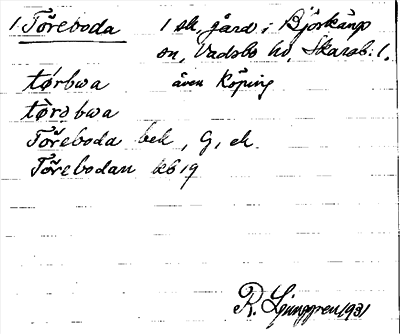 1 Töreboda 1 sk, gård i Björkängs
sn, Vadsbo hd, Skarab. l.
tørbwa även Köping
tòrəbwa
Töreboda bek, G, ek.
Törebodan kb 19
R. Ljunggren 1931